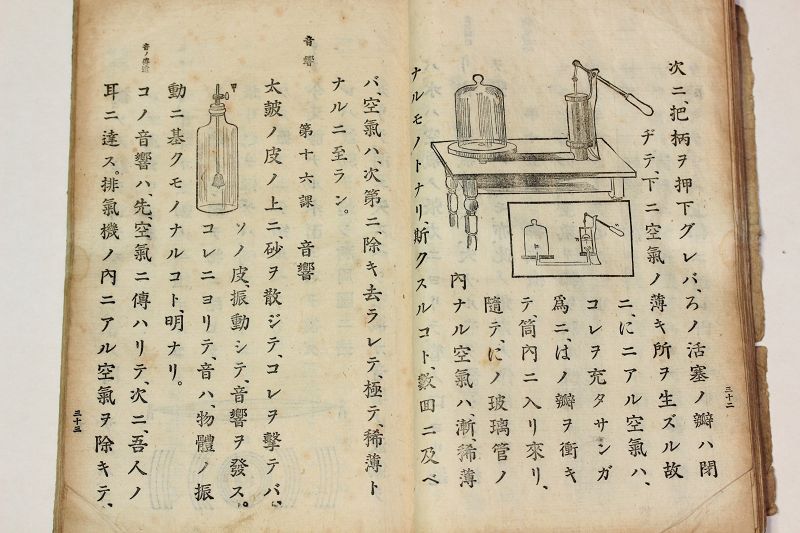 次ニ、把柄ヲ押下グレバ、ろノ活塞ノ瓣ハ閉
ヂテ、下ニ空氣ノ薄キ所ヲ生ズル故
ニ、にニアル空氣ハ、
コレヲ充タサンガ
爲ニ、はノ瓣ヲ衝キ
テ、筒內ニ入リ來リ、
隨テ、にノ玻璃管ノ
內ナル空氣ハ、漸、稀薄
ナルモノトナリ、斯クスルコト、數囬ニ及ベ
三十二
音響
バ、空氣ハ、次第ニ、除キ去ラレテ、極テ、稀薄ト
ナルニ至ラン。
第十六課 音響
太皷ノ皮ノ上ニ、砂ヲ散ジテ、コレヲ擊テバ、
ソノ皮、振動シテ、音響ヲ發ス。
コレニヨリテ、音ハ、物體ノ振
動ニ基クモノナルコト、明ナリ。
音ノ傳達
コノ音響ハ、先、空氣ニ傳ハリテ、次ニ、吾人ノ
耳ニ達ス。排氣機ノ內ニアル空氣ヲ除キテ、
三十三